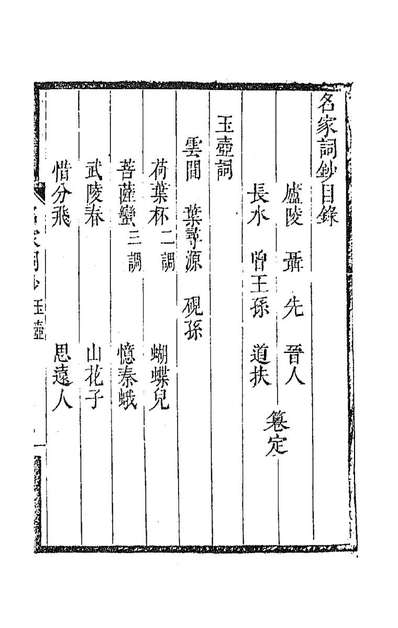 名家詞鈔目錄
廬陵 聶先 晉人
長水 曾王孫 道扶
篹定
玉壺詞
雲間 葉尋源 硯孫
荷葉杯二調 蝴蝶兒
菩薩蠻三調 憶秦蛾
武陵春 山花子
惜分飛 思遠人
名家詞鈔 玉壺